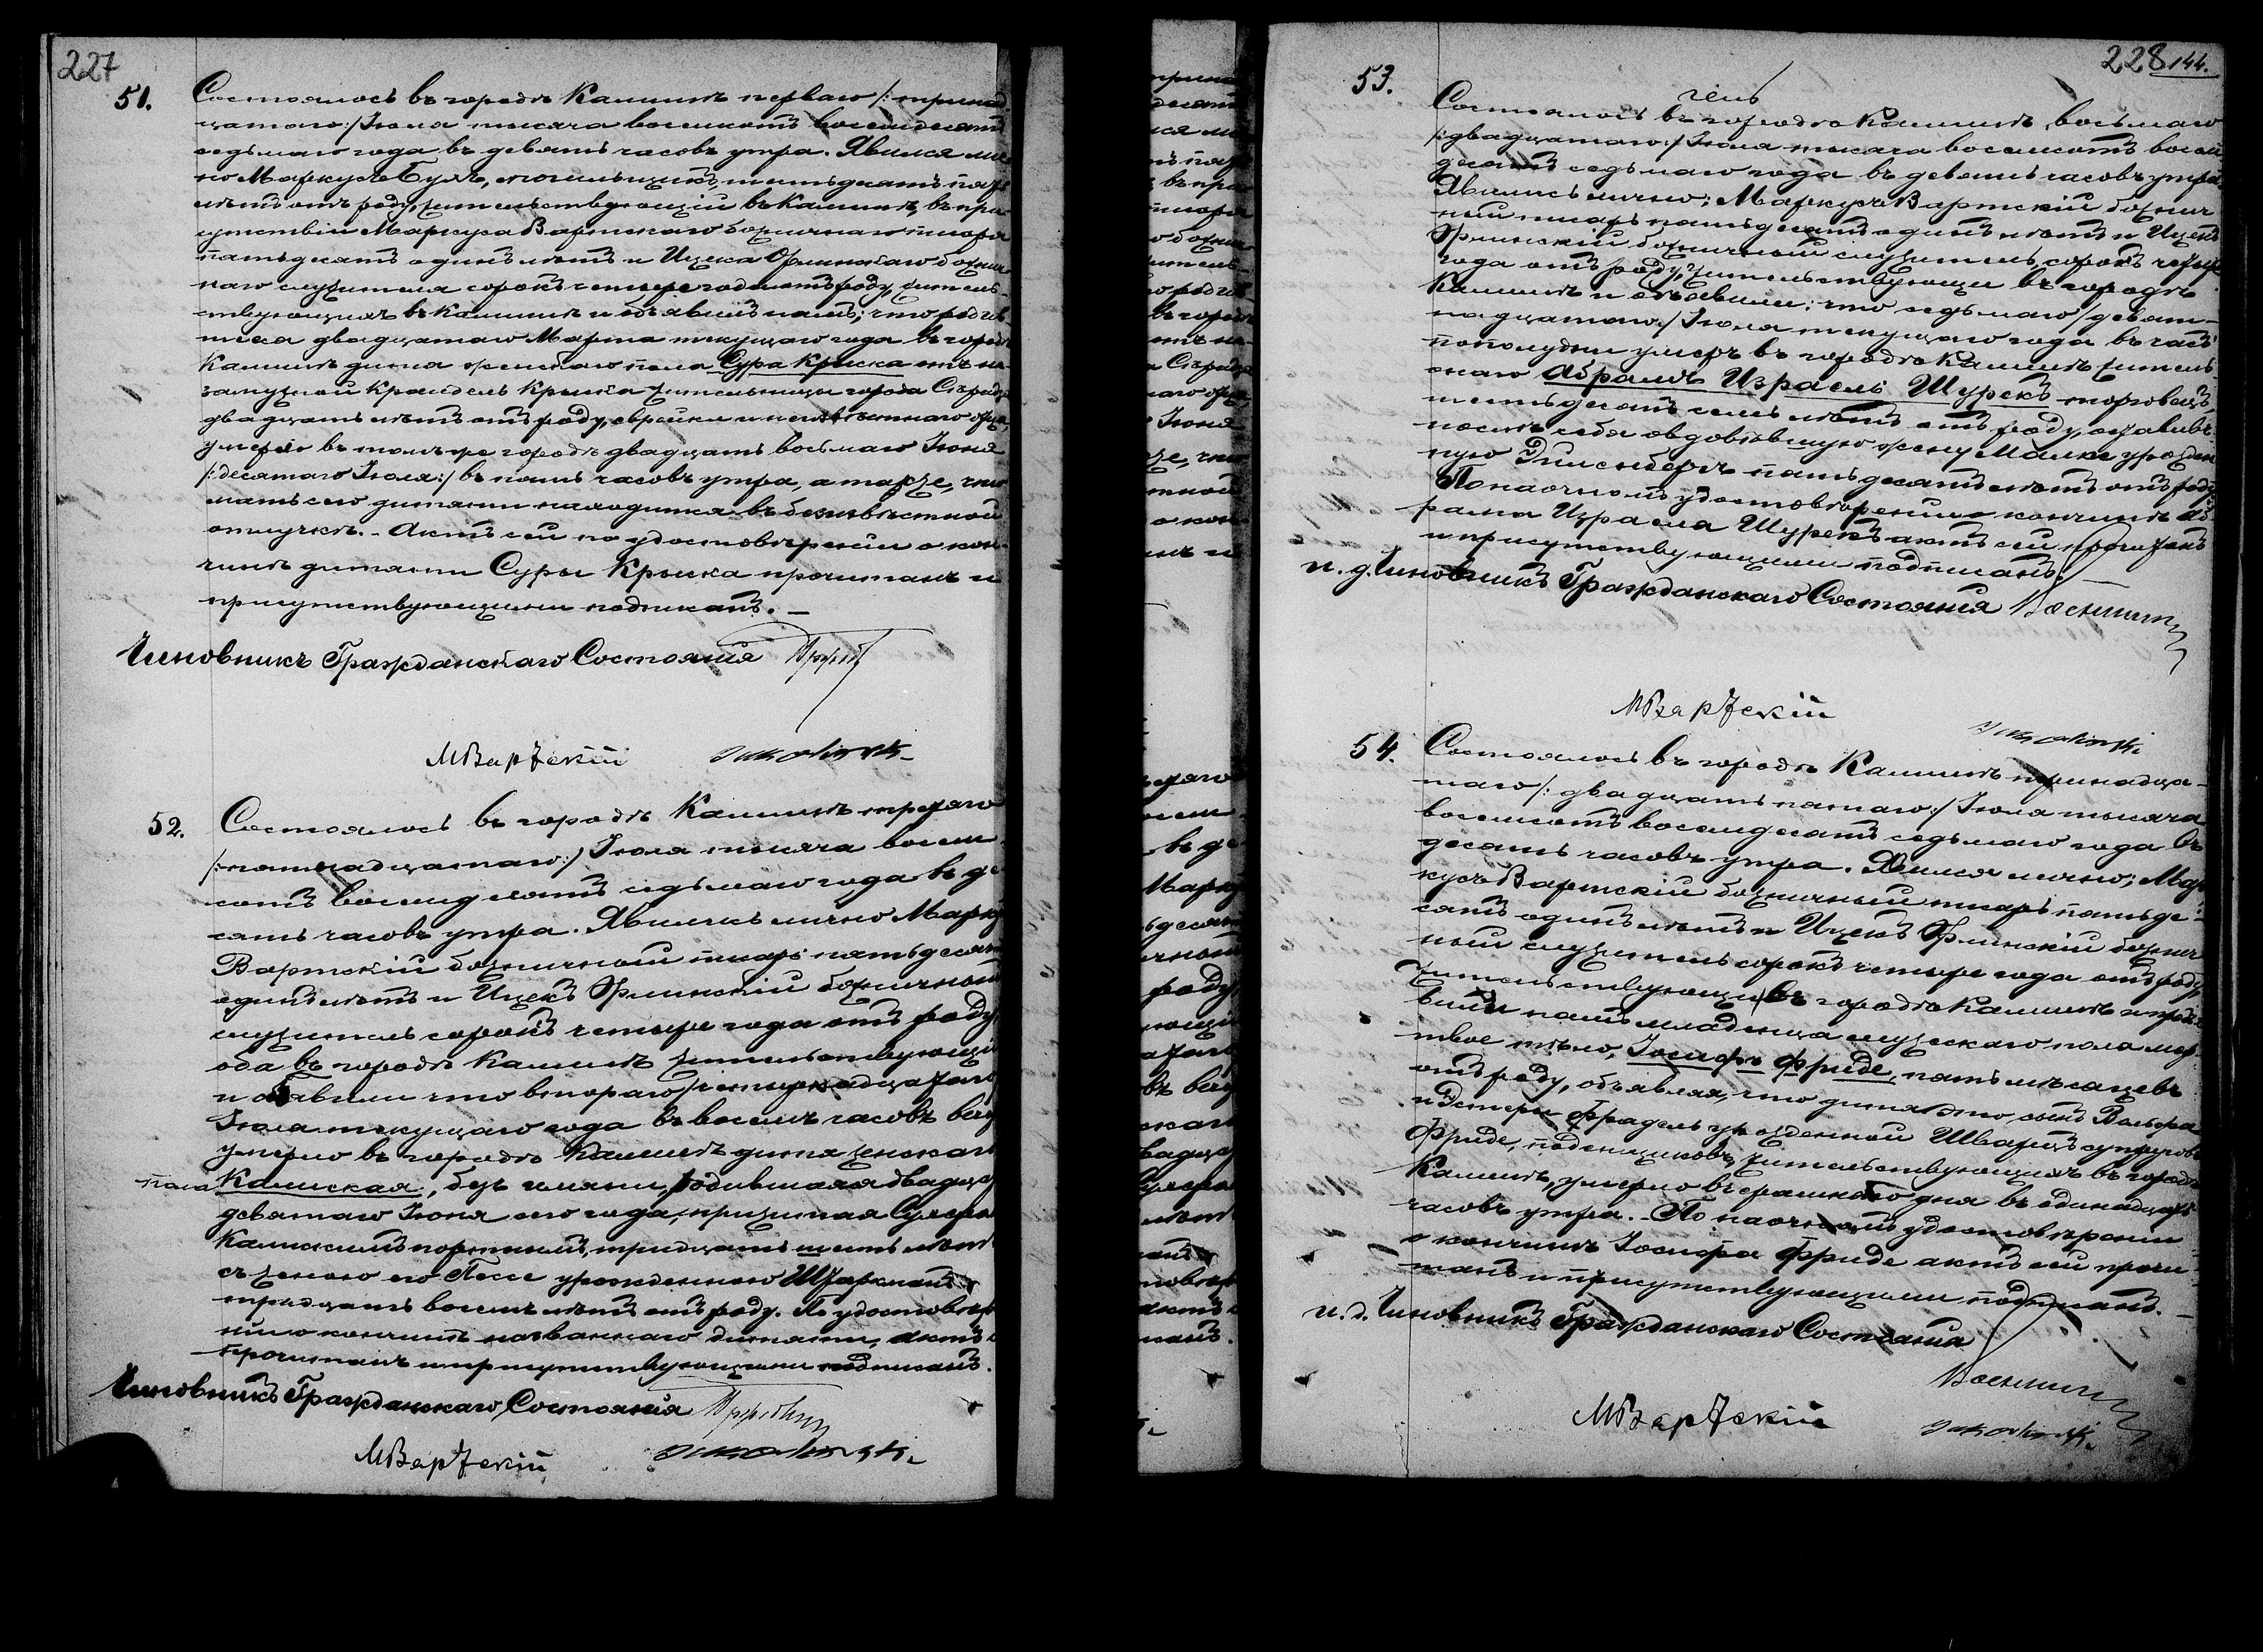 227
51.
Состоялось въ городѣ Калишѣ перваго /: тринад
цатаго :/ Іюля тысяча восемьсотъ восемдесятъ
седьмаго года въ девять часовъ утра. Явился лич
но Маркусъ Бухъ, могильщикъ, шестьдесятъ
лѣтъ отъ роду, жительствующій въ Калишѣ, въ при
сутствіи Маркуса Вартскаго божничнаго писаря
пятьдесятъ одинъ лѣтъ и Ицека Орлинскаго божнич
наго служителя сорокъ четыре года отъ роду, житель
ствующихъ въ Калишѣ и объявилъ намъ; что родив
шееся двадцатаго Марта текущаго года въ городѣ
Калишѣ дитя женскаго пола Сура Крыска отъ не
замужной Крайндель Крыска жительницы города Сѣрадзь
двадцать лѣтъ отъ роду, еврейки и неизвѣстнаго отца,
умерло въ томъ же городѣ двадцать восьмаго Іюня
/: десятаго Іюля :/ въ пять часовъ утра, а также, что
мать сего дитяти находится въ безъизвѣстной
отлучкѣ. - Актъ сей по удостовѣреніи о кон
чинѣ дитяти Суры Крыска прочитанъ и
присутствующими подписанъ. —
Чиновникъ Гражданскаго Состоянія
МВартскій
52.
Состоялось въ городѣ Калишѣ третьяго
/: пятнадцатаго :/ Іюля тысяча восемь
сотъ восемдесятъ седьмаго года въ де
сять часовъ утра. Явились лично Маркусъ
Вартскій божничный писарь пятьдесятъ
одинъ лѣтъ и Ицекъ Орлинскій божничный
служитель сорокъ четыре года отъ роду
оба въ городѣ Калишѣ жительствующіе
и объявили что втораго /четырнадцатаго
Іюля текущаго года въ восемь часовъ вече
умерло въ городѣ Калишѣ дитя женскаго
пола Калиская, безъ имяни, родившаяся двадцать
девятаго Іюня сего года, прижитая
Калискимъ портнымъ, тридцать шесть лѣтъ
съ женою его Пессе урожденною
тридцать восемь лѣтъ отъ роду. По удостовѣре
ніи о кончинѣ названнаго дитяти, актъ
прочитанъ и присутствующими подписанъ.
Чиновникъ Гражданскаго Состоянія
МВартскій
228 144.
53.
Состоялось въ городѣ Калишѣ, восьмаго
/: двадцатаго :/ Іюля тысяча восемьсотъ восем
десятъ седьмаго года въ девять часовъ утра
Явились лично; Маркусъ Вартскій божнич
ный писарь пятьдесятъ одинъ лѣтъ и Ицекъ
Орлинскій божничный служитель сорокъ четыре
года отъ роду, жительствующіе въ городѣ
Калишѣ и объявили: что седьмаго /девят-
надцатаго :/ Іюля текущаго года въ часъ
пополудни умеръ въ городѣ Калишѣ житель
онаго Абрамъ Израель Шурекъ торговецъ,
шестьдесятъ семь лѣтъ отъ роду, оставивъ
послѣ себя овдовѣвшую жену Малке урожден
ную пятьдесятъ лѣтъ отъ роду
По наочномъ удостовѣреніи о кончинѣ Аб
рама Израеля Шурекъ актъ сей прочитанъ
и присутствующими подписанъ. —
и. д. Чиновникъ Гражданскаго Состоянія
МВартскій
54.
Состоялось въ городѣ Калишѣ тринадца-
таго /: двадцать пятаго :/ Іюля тысяча
восемьсотъ восемдесятъ седьмаго года въ
десять часовъ утра. Явился лично; Мар
кусъ Вартскій божничный писарь пятьде-
сятъ одинъ лѣтъ и Ицекъ Орлинскій божнич
ный служитель сорокъ четыре года отъ роду,
жительствующіе въ городѣ Калишѣ и предъя
вили намъ младенца мужескаго пола мер
твое тѣло, Іосифъ Фриде, пять мѣсяцевъ
отъ роду, объявляя, что дитя это сынъ Вольфа
и Эстеры Фрадель урожденной Шварцъ супруговъ
Фриде, поденщиковъ, жительствующихъ въ городѣ
Калишѣ, умерло вчерашняго дня въ одинадцать
часовъ утра. - По наочномъ удостовѣреніи
о кончинѣ Іосифа Фриде актъ сей прочи
танъ и присутствующими подписанъ. —
и. д. Чиновникъ Гражданскаго Состоянія
МВартскій